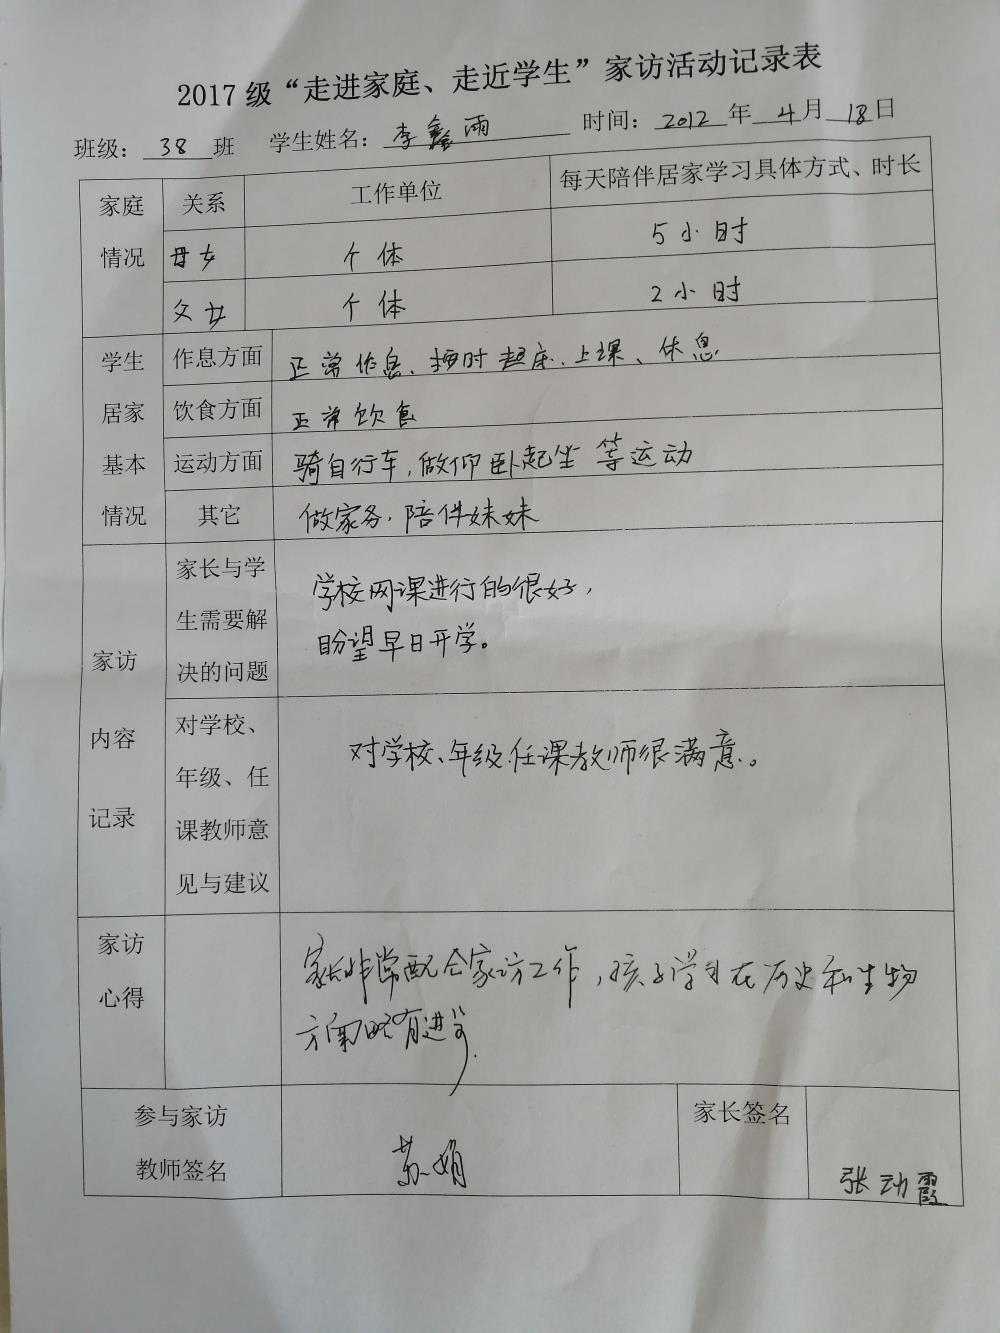 2017级“走进家庭、走近学生”家访活动记录表
班级：38班 学生姓名：李鑫雨 时间：2012年4月18日
家庭情况 关系 工作单位 每天陪伴居家学习具体方式、时长
母女 个体 5小时
父女 个体 2小时
学生居家基本情况 作息方面 正常作息、按时起床、上课、休息
饮食方面 正常饮食
运动方面 骑自行车，做仰卧起坐等运动
其它 做家务，陪伴妹妹
家访内容记录
家长与学
生需要解
决的问题
学校网课进行的很好，
盼望早日开学。
对学校、
年级、任
课教师意
见与建议
对学校、年级、任课教师很满意。
家访
心得
家长非常配合家访工作，孩子学习在历史和生物
方面略有进步.
参与家访
教师签名
苏娟
家长签名
张动霞